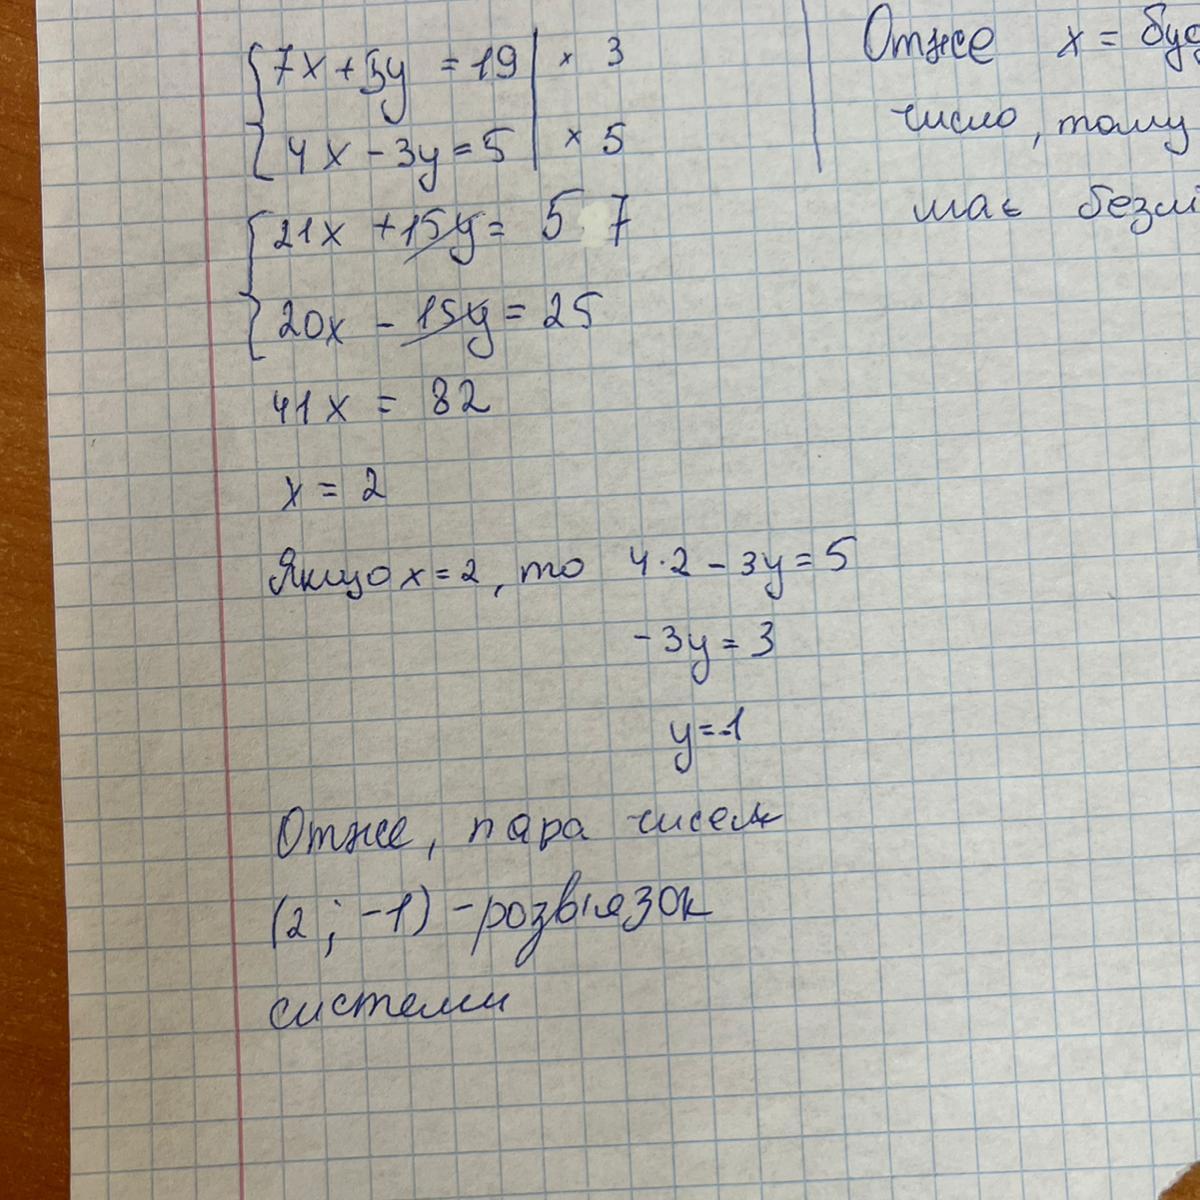 7x + 5y = 19 | × 3
4x - 3y = 5 | × 5
21x + 15y = 57
20x - 15y = 25
41x = 82
x = 2
Якщо x = 2, то 4·2 - 3y = 5
-3y = 3
y = -1
Отже, пара чисел
(2; -1) - розв'язок
системи
Отже x =
число, тому
має